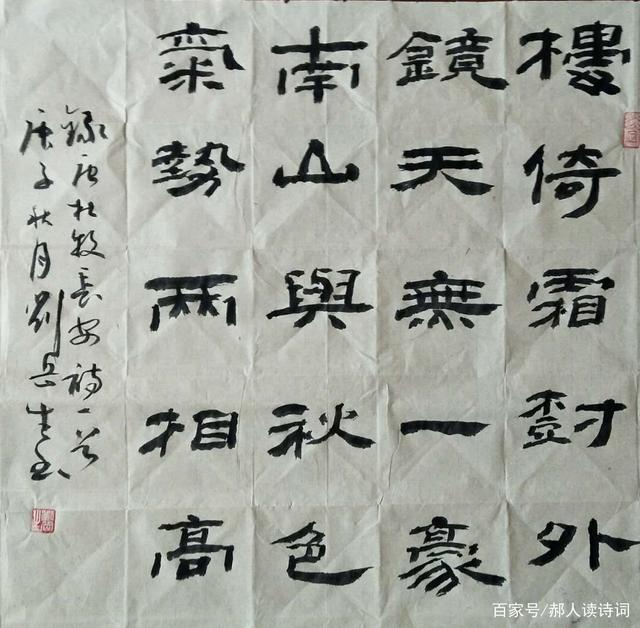 樓倚霜樹外
鏡天無一豪
南山與秋色
氣勢兩相高
錄唐杜牧長安詩一首
庚子秋月劉岳生书
百家号/郝人读诗词